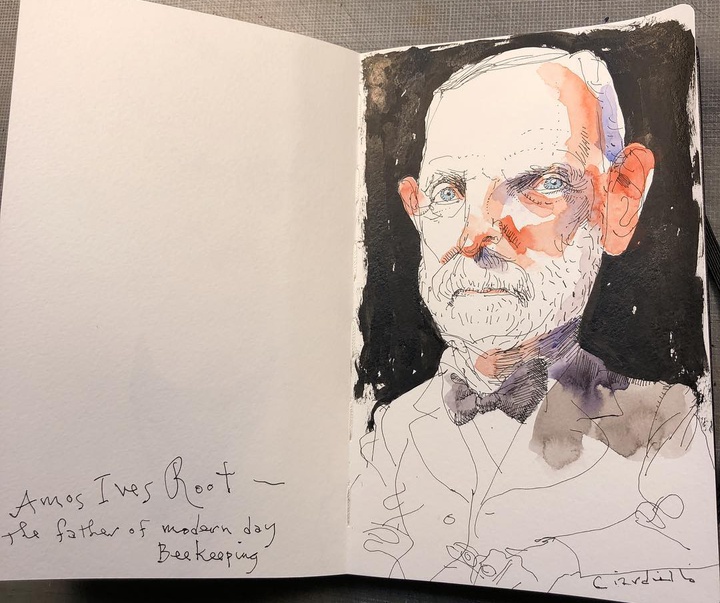 Amos Ives Root —
the father of modern day
Beekeeping
Ciardiello